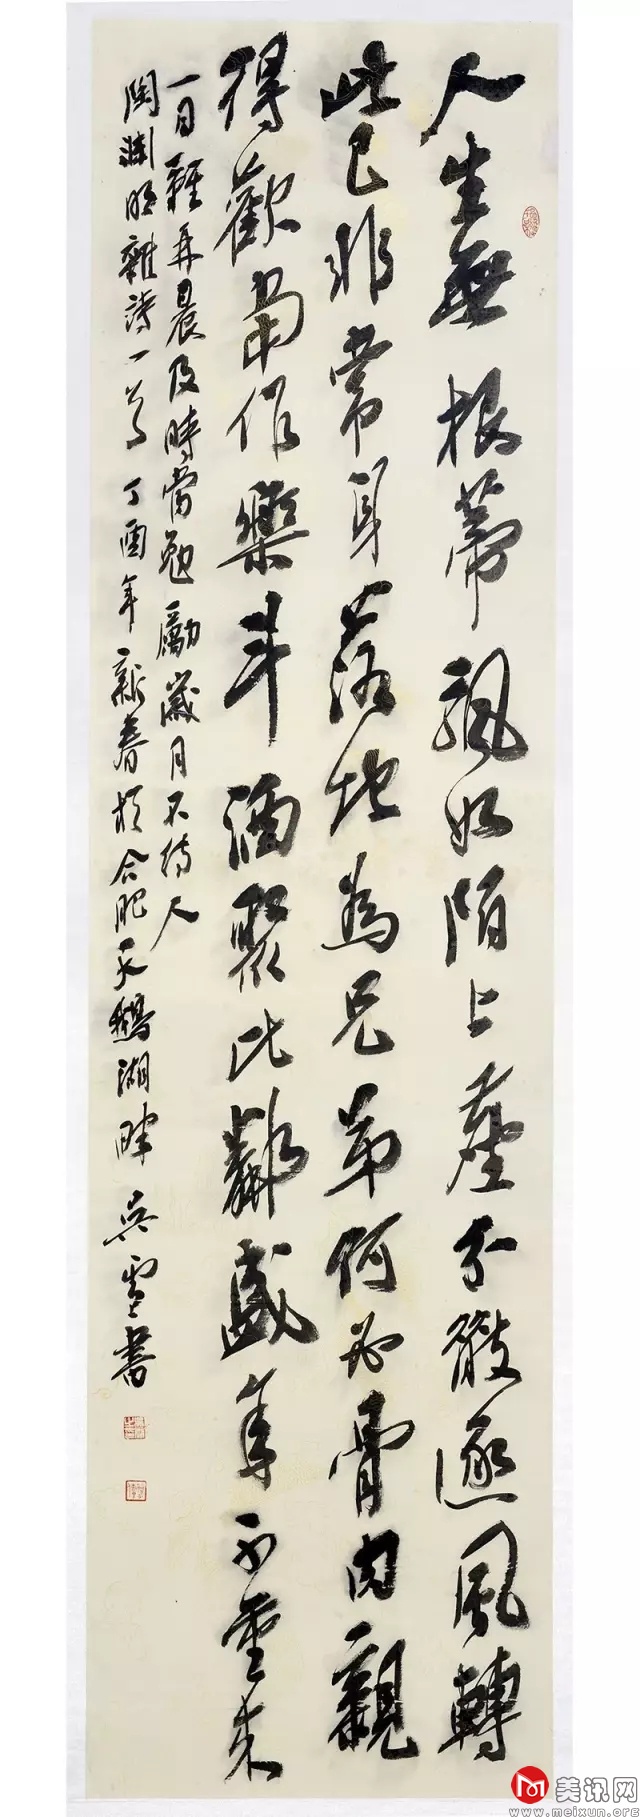 人生無根蒂飄如陌上塵分散逐風轉
此已非常身落地為兄弟何必骨肉親
得歡當作樂斗酒聚比鄰盛年不重來
一日難再晨及時當勉勵歲月不待人
陶淵明雜詩一首丁酉年新春於合肥天鵝湖畔吳雪書
美讯网
www.meixun.org